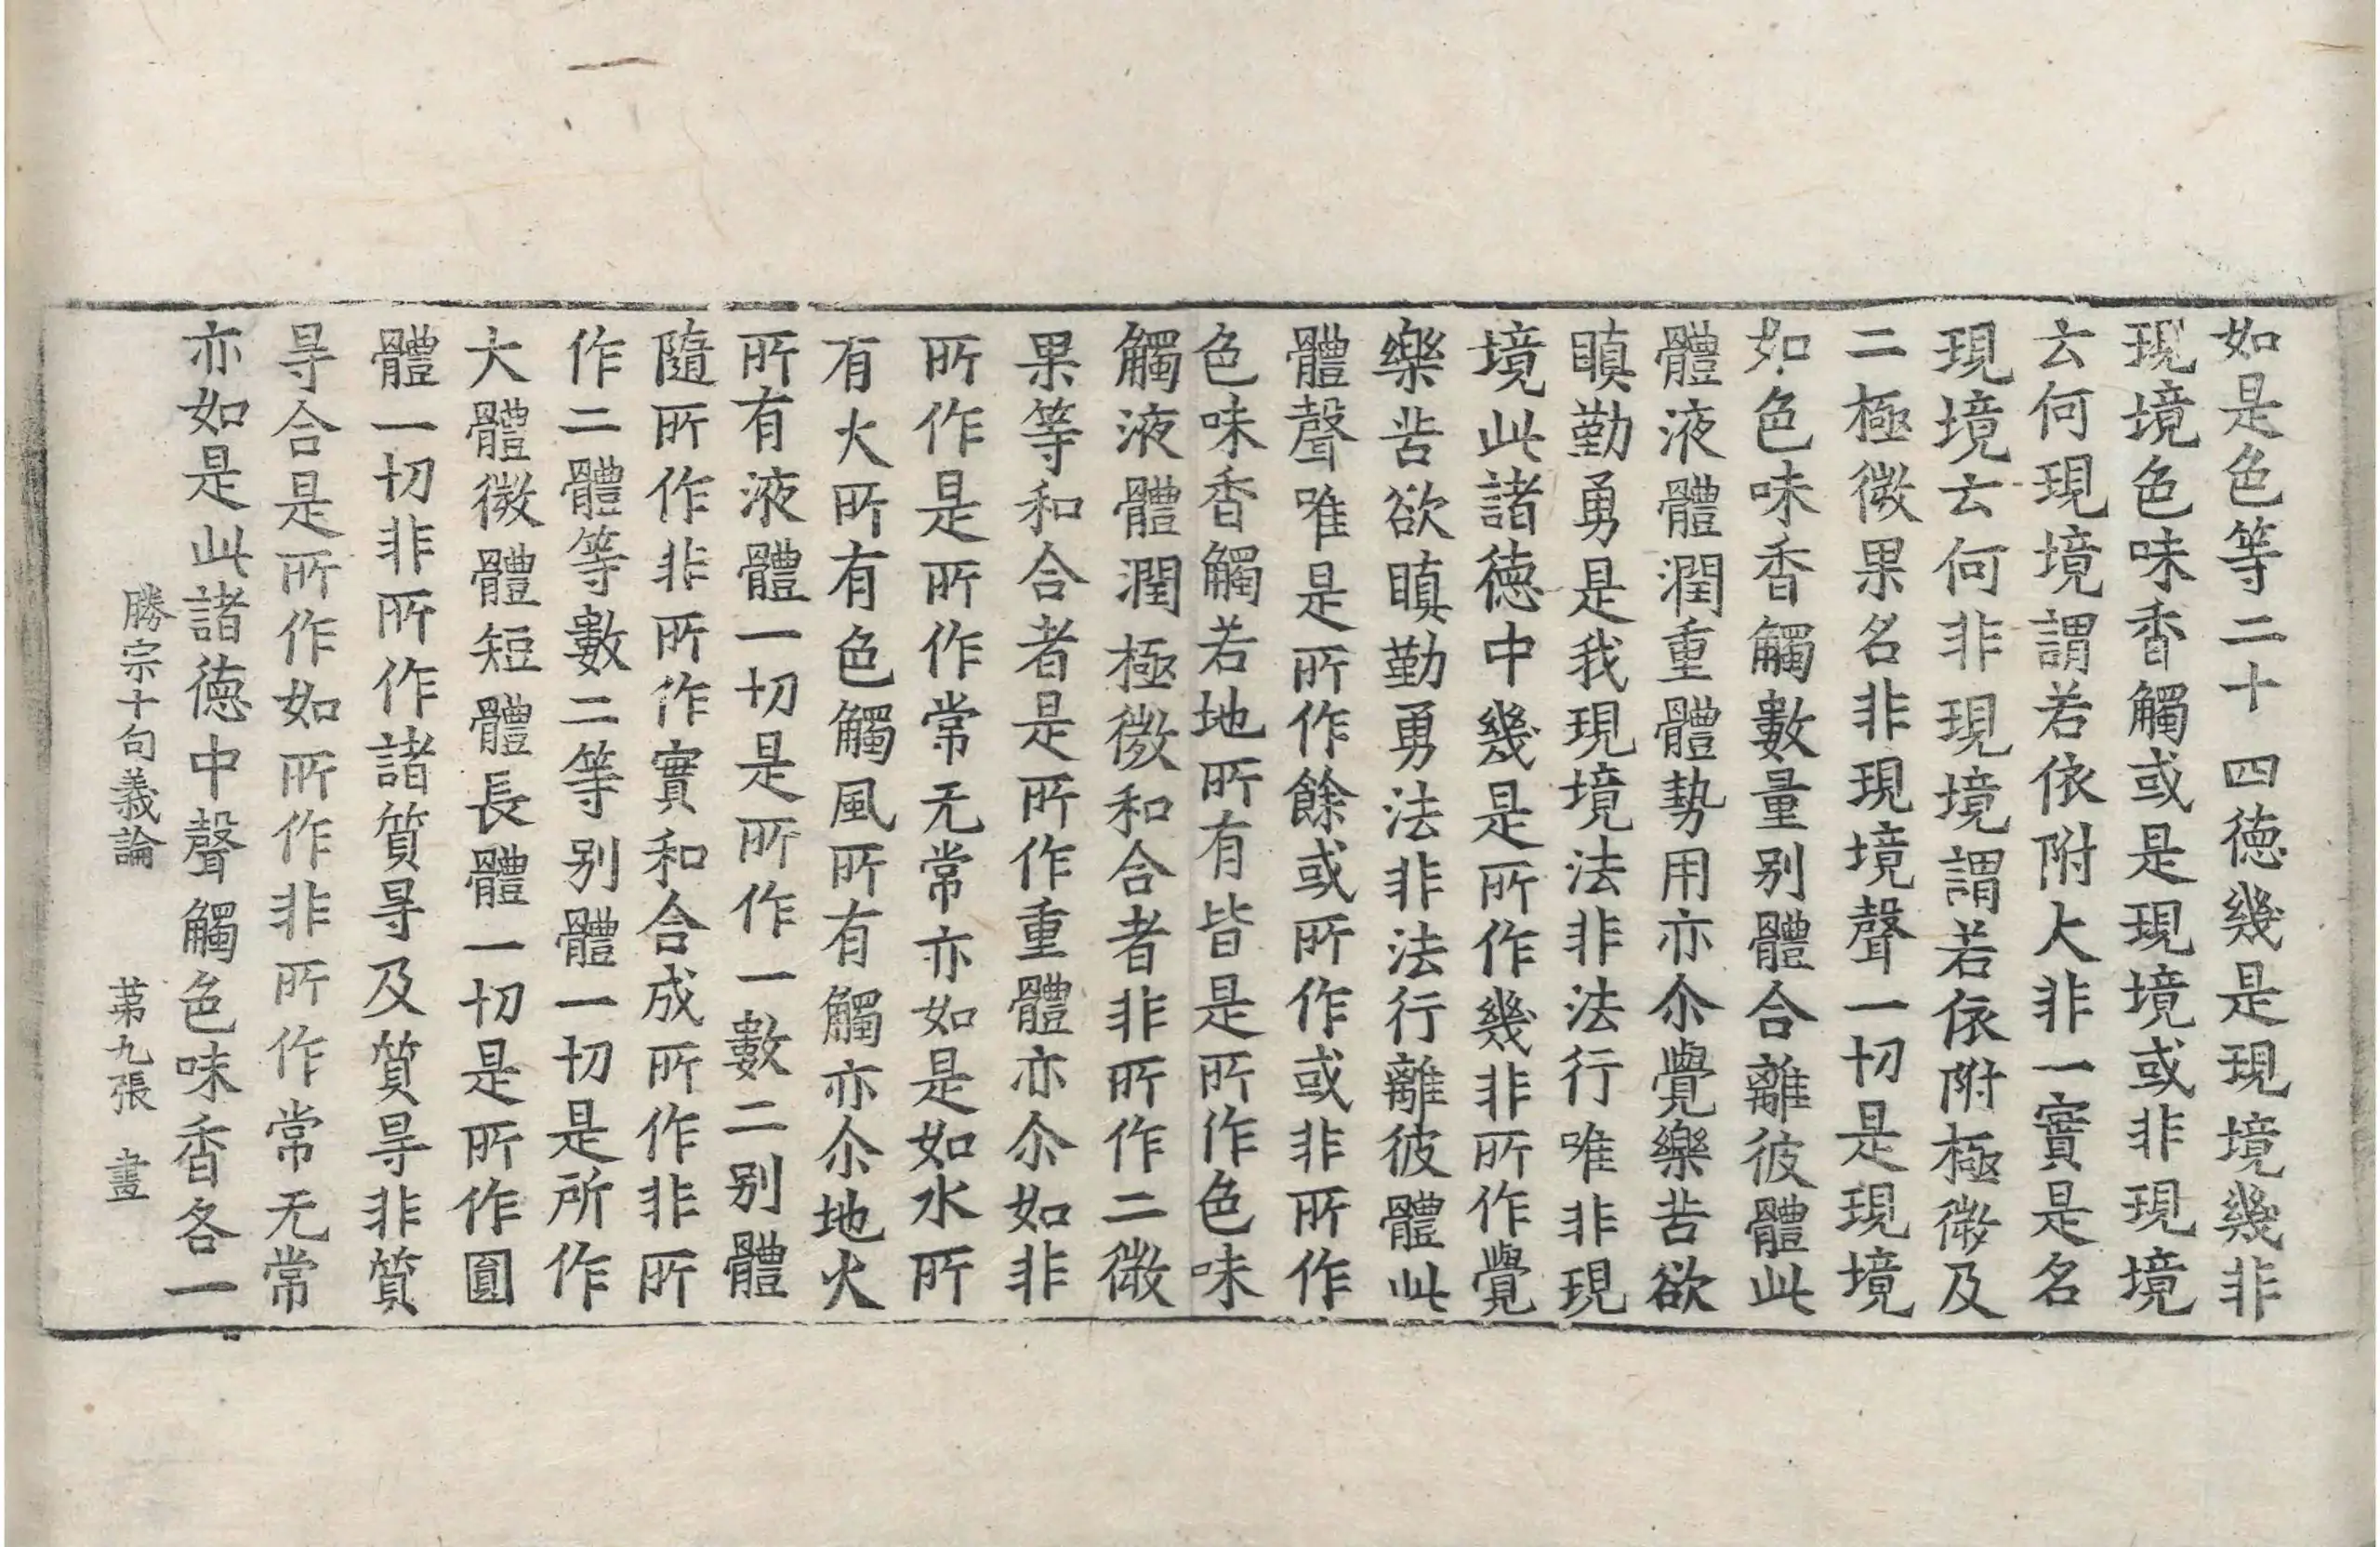 如是色等二十四德幾是現境幾非
現境色味香觸或是現境或非現境
云何現境謂若依附大非一實是名
現境云何非現境謂若依附極微及
二極微果名非現境聲一切是現境
如色味香觸數量別體合離彼體此
體液體潤重體勢用亦尒覺樂苦欲
瞋勤勇是我現境法非法行唯非現
境此諸德中幾是所作幾非所作覺
樂苦欲瞋勤勇法非法行離彼體此
體聲唯是所作餘或所作或非所作
色味香觸若地所有皆是所作色味
觸液體潤極微和合者非所作二微
果等和合者是所作重體亦尒如非
所作是所作常无常亦如是如水所
有火所有色觸風所有觸亦尒地火
所有液體一切是所作一數二別體
隨所作非所作實和合成所作非所
作二體等數二等別體一切是所作
大體微體短體長體一切是所作圓
體一切非所作諸質㝵及質㝵非質
㝵合是所作如所作非所作常无常
亦如是此諸德中聲觸色味香各一
勝宗十句義論 苐九張 畫